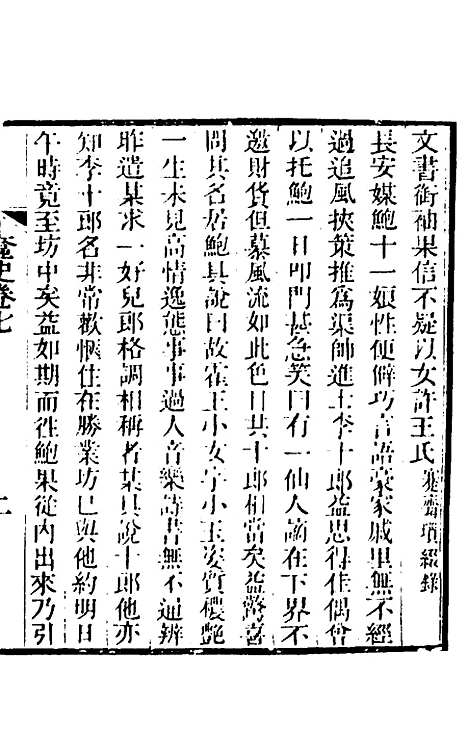 文書銜袖果信不疑以女許王氏蹇齋瑣綴錄
長安媒鮑十一娘性便僻巧言語豪家戚里無不經
過追風挾策推爲渠帥進士李十郎益思得佳偶曾
以托鮑一日叩門甚急笑曰有一仙人謫在下界不
邀財貨但慕風流如此色目共十郎相當矣益驚喜
問其名居鮑具說曰故霍王小女字小玉姿質穠艷
一生未見高情逸態事事過人音樂詩書無不通辨
昨遣某求一好兒郎格調相稱者某具說十郎他亦
知李十郎名非常歡愜住在勝業坊已與他約明日
午時竟至坊中矣益如期而徃鮑果從內出來乃引
奩史卷七
二